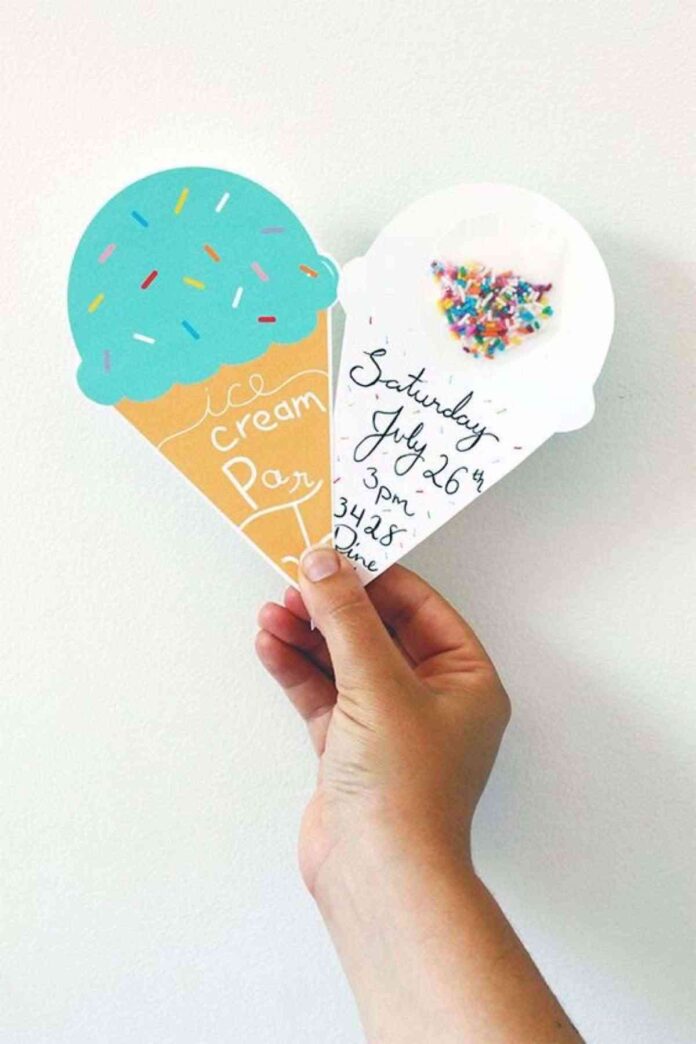 ice
cream
Par
Saturday
July 26th
3pm
3428
Pine